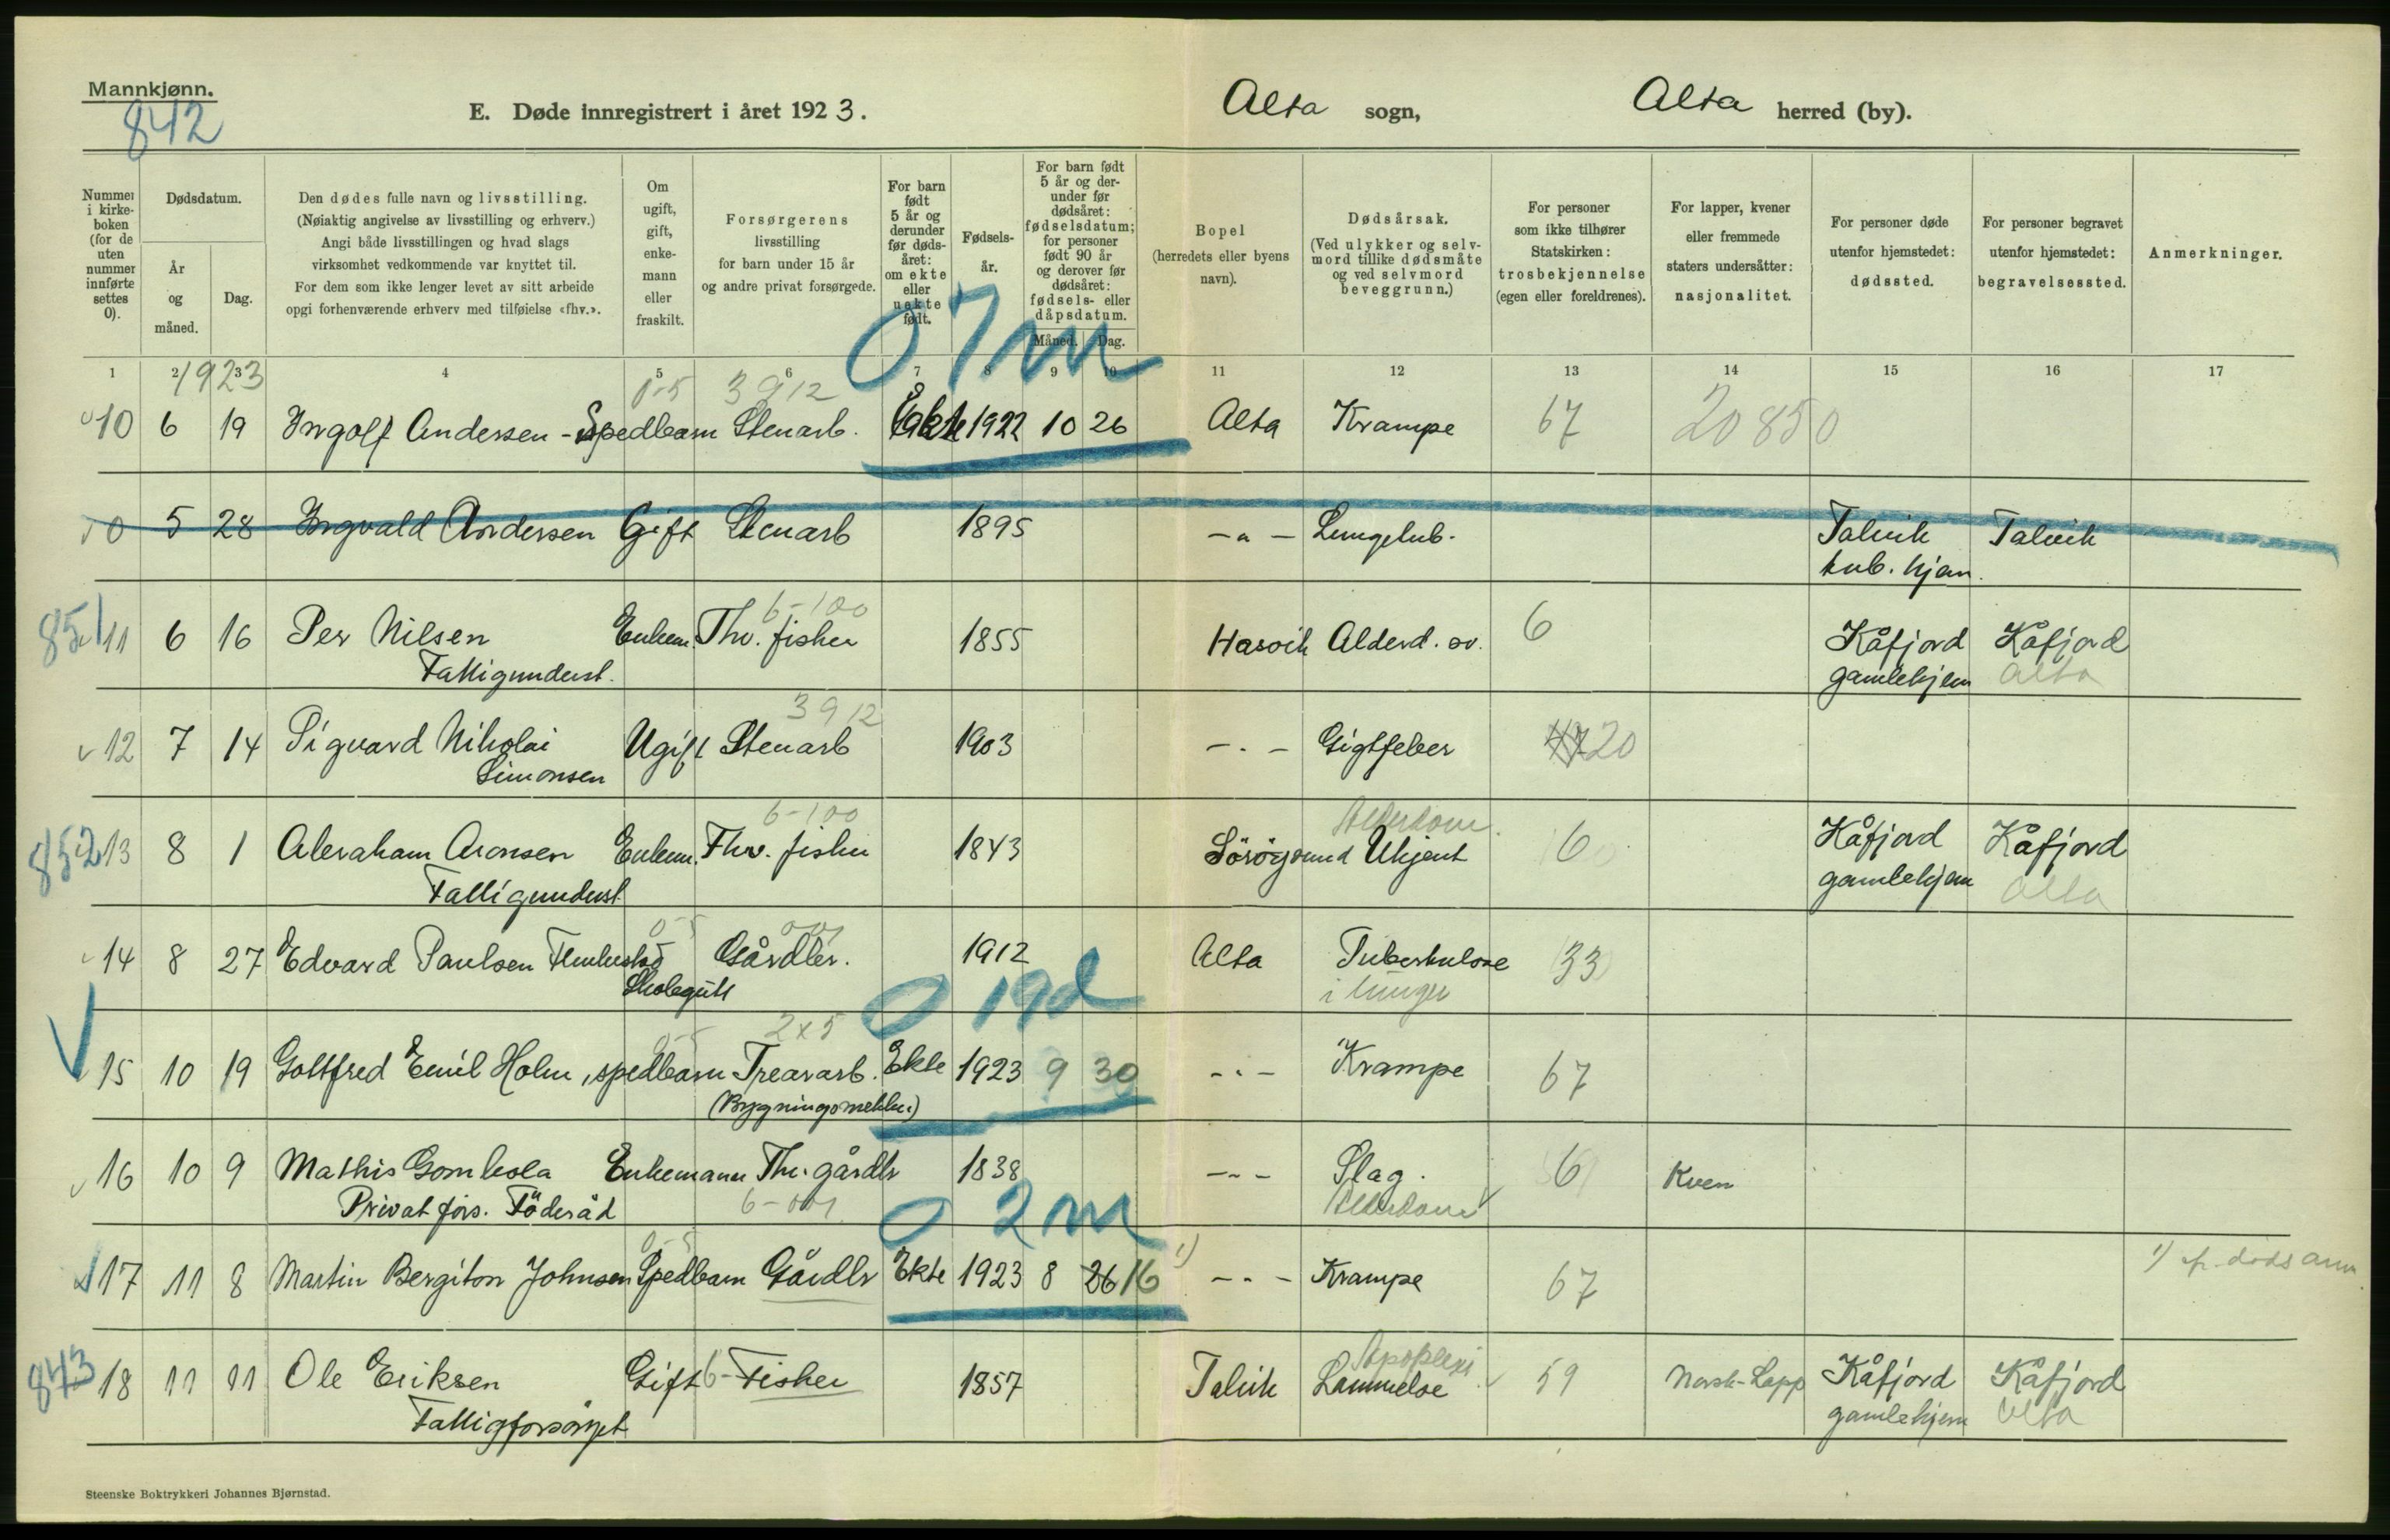 Mannkjønn.
842
E. Døde innregistrert i året 1923.
Alta sogn,
Alta herred (by).
Nummer i kirke-boken (for de uten nummer innførte settes 0).
Dødsdatum.
År og måned.
Dag.
Den dødes fulle navn og livsstilling.
(Nøiaktig angivelse av livsstilling og erhverv.)
Angi både livsstillingen og hvad slags
virksomhet vedkommende var knyttet til.
For dem som ikke lenger levet av sitt arbeide
opgi forhenværende erhverv med tilføielse «fhv.».
Om ugift, gift, enke-mann eller fraskilt.
Forsørgerens
livsstilling
for barn under 15 år
og andre privat forsørgede.
For barn født 5 år og derunder før døds-året: om ekte eller uekte født.
Fødsels-år.
For barn født 5 år og der-under før dødsåret: fødselsdatum; for personer født 90 år og derover før dødsåret: fødsels- eller dåpsdatum.
Måned. Dag.
Bopel
(herredets eller byens navn).
Dødsårsak.
(Ved ulykker og selv-mord tillike dødsmåte og ved selvmord beveggrunn.)
For personer som ikke tilhører Statskirken: trosbekjennelse (egen eller foreldrenes).
For lapper, kvener eller fremmede staters undersåtter: nasjonalitet.
For personer døde utenfor hjemstedet: dødssted.
For personer begravet utenfor hjemstedet: begravelsessted.
Anmerkninger.
1 2 3 4 5 6 7 8 9 10 11 12 13 14 15 16 17
1923
0-5 3912 0 7m
10 6 19 Ingolf Andersen - Spedbarn Stenarb. Ekte 1922 10 26 Alta Krampe 67 20850
0 5 28 Ingvald Andersen Gift Stenarb 1895 -"- Lungetub. Talvik Talvik
tub. hjem.
6-100
851 11 6 16 Per Nilsen Enkem. Fhv. fisker 1855 Hasvik Alderd. sv. 6 Kåfjord Kåfjord
Fattigunderst. gamlehjem Alta
3912
12 7 14 Sigvard Nikolai Ugift Stenarb 1903 -"- Gigtfeber 20
Simonsen
6-100 Alderdom.
852 13 8 1 Abraham Aronsen Enkem. Fhv. fisker 1843 Söröysund Ukjent 6 Kåfjord Kåfjord
Fattigunderst gamlehjem Alta
0-5 001
14 8 27 Edvard Paulsen Gårdbr. 1912 Alta Tuberkulose 33
Skolegutt i lunger
0 19d
0-5 2x5
15 10 19 Gottfred Emil Holm, spedbarn Trearb. Ekte 1923 9 30 -"- Krampe 67
16 10 9 Mathis Gombola Enkemann Fhv. gårdbr 1838 -"- Slag. 6 Kven
Privat fors. Föderåd 6-001 Alderdom
0 2m
0-5
17 11 8 Martin Bergiton Johnsen Spedbarn Gårdbr Ekte 1923 8 26 16 1) -"- Krampe 67 1)
Apopleksi
843 18 11 11 Ole Eriksen Gift 6- Fisker 1857 Talvik Lammelse 59 Norsk-Lapp Kåfjord Kåfjord
Fattigforsörget gamlehjem Alta
Steenske Boktrykkeri Johannes Bjørnstad.